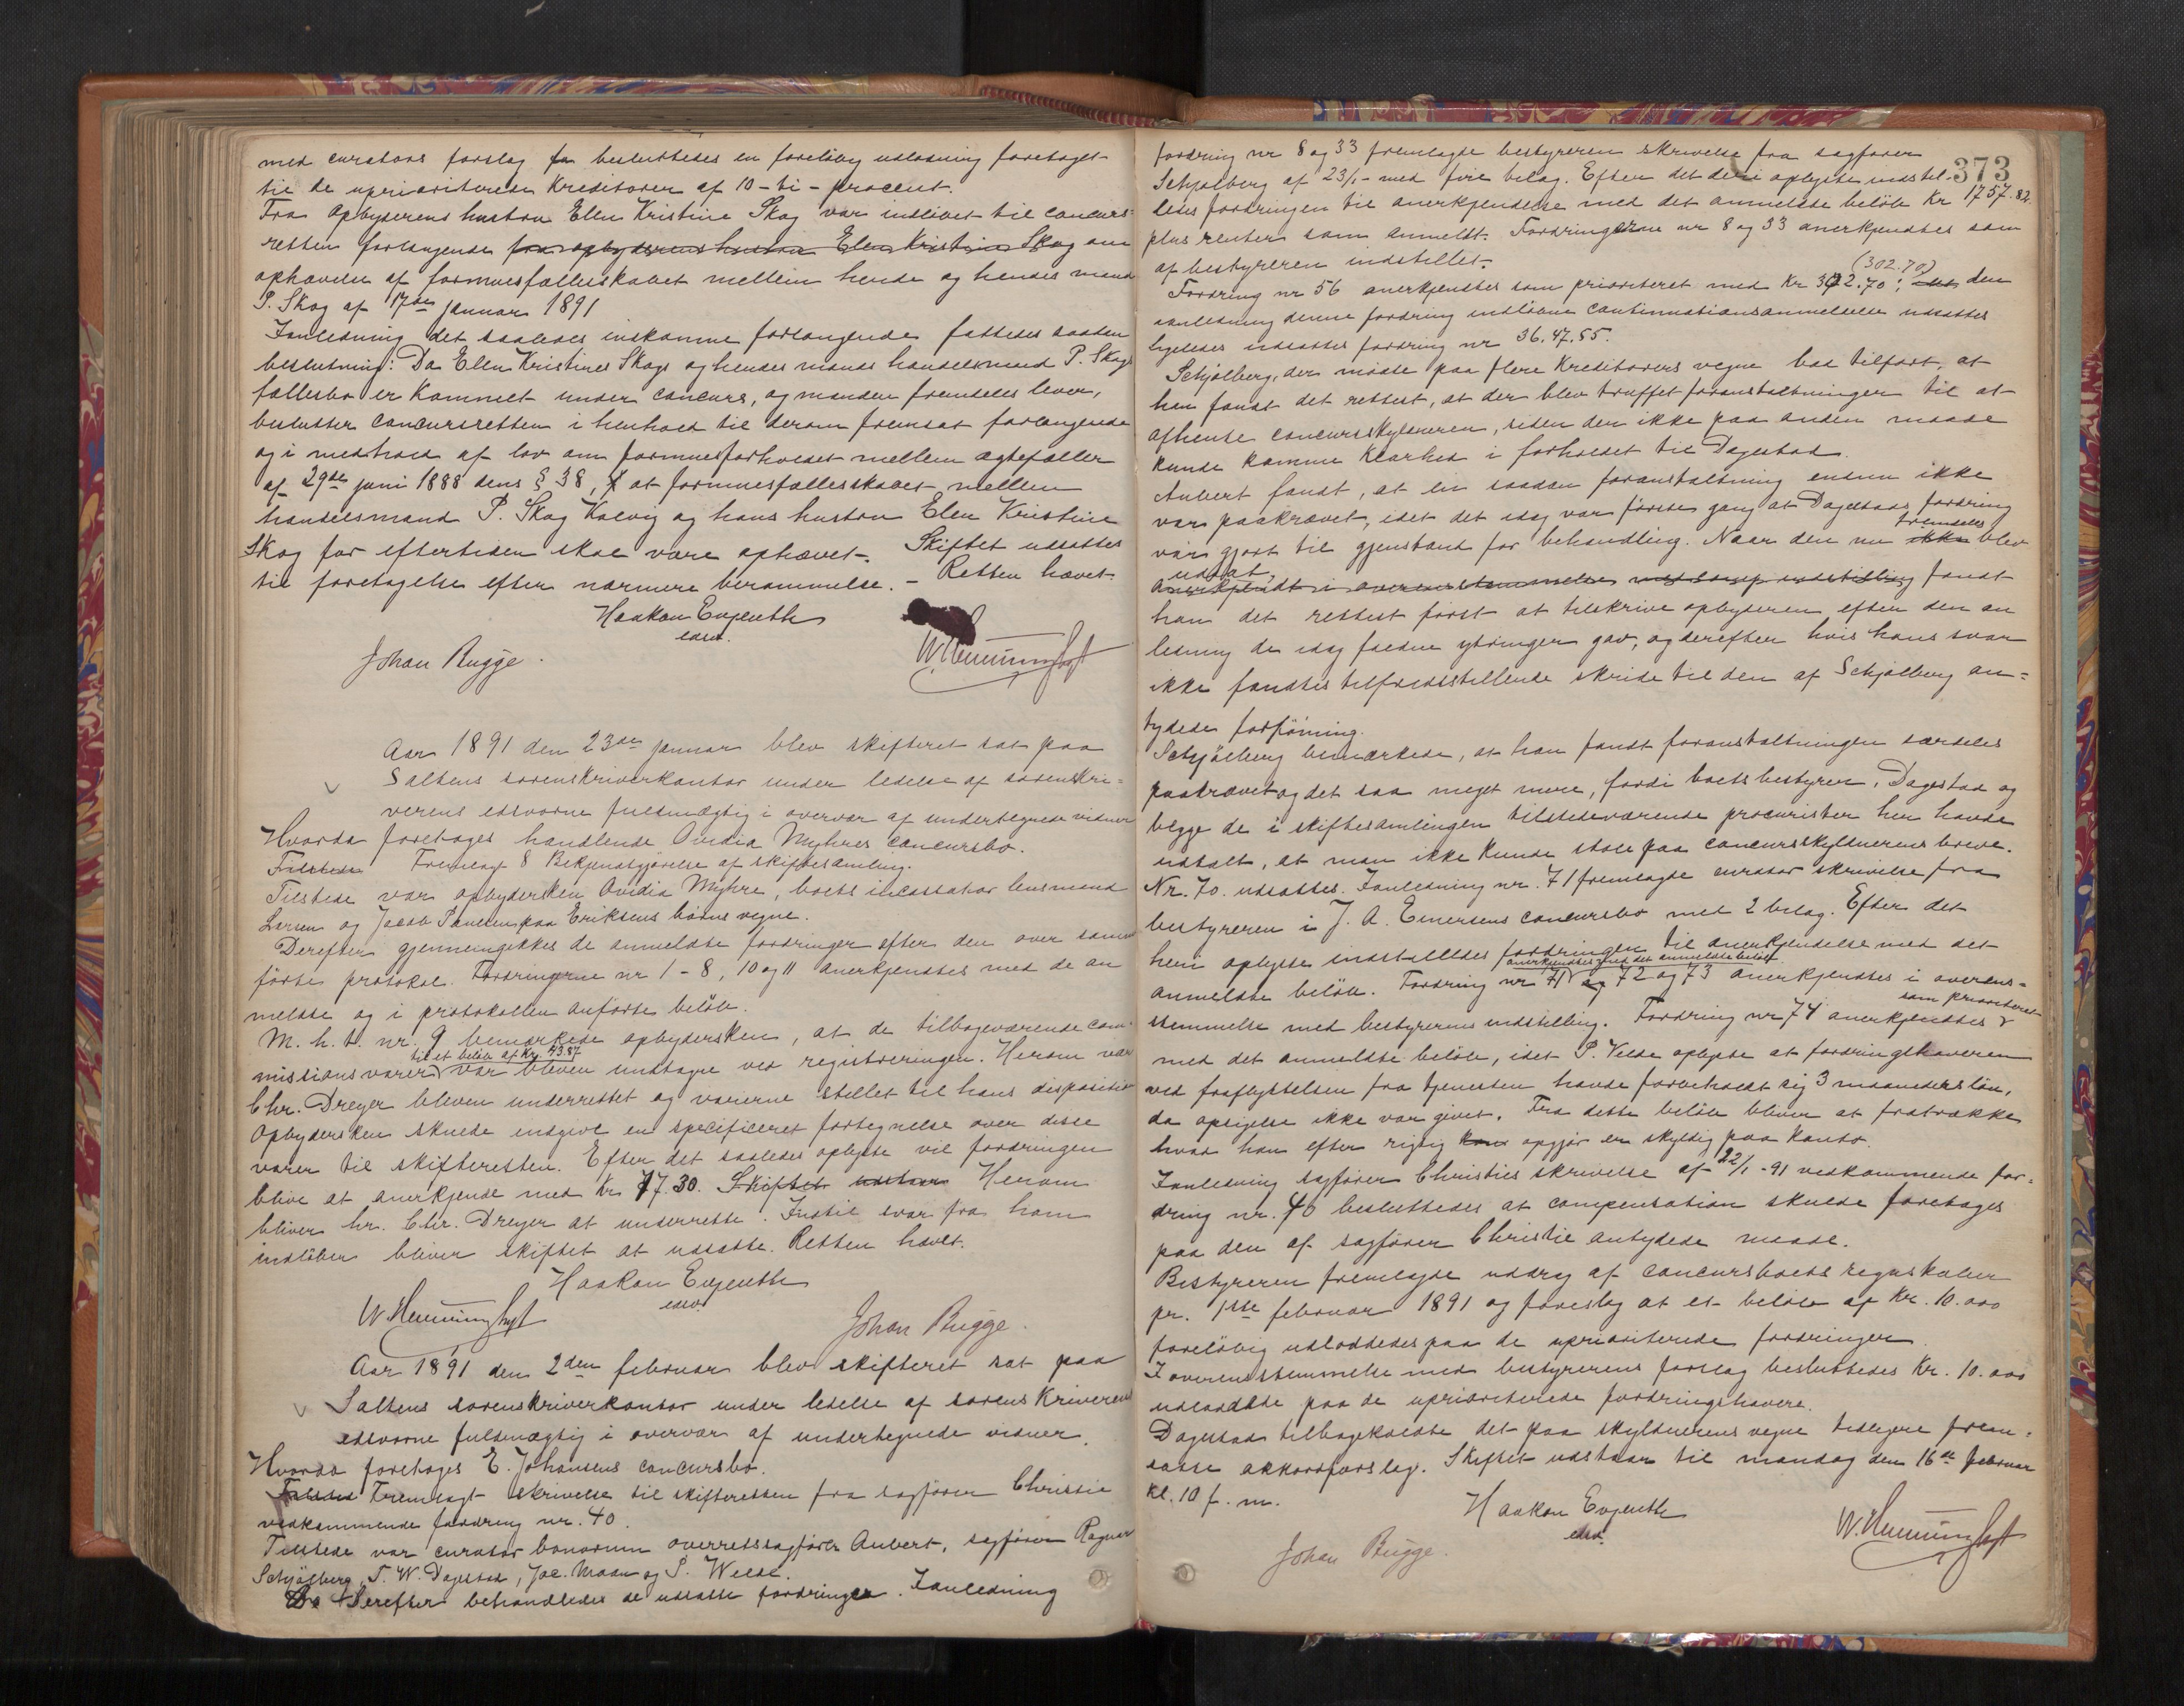 med curators forslag fra besluttedes en foreløbig udlodning foretaget
til de uprioriterede Kreditorer af 10 - ti - procent.
Fra opbyderens hustru Elen Kristine Skog var indløbet til concurs-
retten forlangende fra opbyderens hustru Elen Kristine Skog om
ophævelse af formuesfællesskabet mellem hende og hendes mand
P. Skog af 17de januar 1891
Ianledning det saaledes inkomne forlangende fattedes saadan
beslutning: Da Elen Kristines Skogs og hendes mands handelsmand P. Skogs
fællesbo er kommet under concurs, og manden fremdeles lever,
beslutter concursretten i henhold til derom fremsat forlangende
og i medhold af lov om formuesforholdet mellem ægtefæller
af 29de juni 1888 dens § 38, at formuesfællesskabet mellem
handelsmand P. Skog Kolvig og hans hustru Elen Kristine
Skog for eftertiden skal være ophævet. Skiftet udsattes
til foretagelse efter nærmere berammelse. - Retten hævet.
Haakon Evjenth
edsv.
Johan Bugge. W. Henningsgt
Aar 1891 den 23de januar blev skifteret sat paa
Saltens sorenskriverkontor under ledelse af sorenskri=
verens edsvorne fuldmægtig i overvær af undertegnede vidner
Hvorda foretoges handlende Ovidia Myhres concursbo.
Tilstede Fremlagt 8 Bekjendtgjørelse af skiftesamling.
Tilstede var opbydersken Ovidia Myhre, boets incassator lensmand
Larsen og Jacob Paulsen paa Eriksens børns vegne.
Derefter gjennemgikkes de anmeldte fordringer efter den over samme
førte protokol. Fordringerne nr 1 - 8, 10 og 11 anerkjendtes med de an
meldte og i protokollen anførte beløb.
M. h. t. nr. 9 bemærkede opbydersken, at de tilbageværende com-
til et beløb af Kr. 43.87
missionsvarer var bleven undtagne ved registreringen. Herom var
Chr. Dreyer bleven underrettet og varerne stillet til hans disposition
Opbydersken skulde indgive en specificeret fortegnelse over disse
varer til skifteretten. Efter det saaledes oplyste vil fordringen
blive at anerkjende med Kr 77.30. Skiftet udstaar Herom
bliver hr. Chr. Dreyer at underrette. Indtil svar fra ham
indløber bliver skiftet at udsætte. Retten hævet.
Haakon Evjenth
edsv.
W. Henningsgt Johan Bugge.
Aar 1891 den 2den februar blev skifteret sat paa
Saltens sorenskriverkontor under ledelse af sorenskriverens
edsvorne fuldmægtig i overvær af undertegnede vidner.
Hvorda foretoges E. Johansens concursbo.
Tilsted Fremlagt skrivelse til skifteretten fra sagfører Christie
vedkommende fordring nr. 40.
Tilstede var curator bonorum overretssagfører Aubert, sagfører Ragnar
Schjølberg, T. W. Dagestad, Jac. Moan og P. Welde.
Derefter behandledes de udsatte fordringer. Ianledning
373
fordring nr 8 og 33 fremlagde bestyreren skrivelse fra sagfører
Schjølberg af 23/1 - med fire bilag. Efter det deri oplyste indstil-
ledes fordringen til anerkjendelse med det anmeldte beløb Kr 1757.82.
plus renter som anmeldt. Fordringerne nr 8 og 33 anerkjendtes som
af bestyreren indstillet.
(302.70)
Fordring nr 56 anerkjendtes som prioriteret med Kr 302.70; den
ianledning denne fordring indløbne continuationsanmeldelse udsattes
ligeledes udsattes fordring nr 36.47.55.
Schjølberg, der mødte paa flere Kreditorers vegne bad tilført, at
han fandt det rettest, at der blev truffet foranstaltninger til at
afhente concursskyldneren, siden der ikke paa anden maade
kunde komme klarhed i forholdet til Dagestad.
Aubert fandt, at en saadan foranstaltning endnu ikke
var paakrævet, idet det idag var første gang at Dagestads fordring
fremdeles
var gjort til gjenstand for behandling. Naar den nu ikke blev
udsat,
anerkjendt i overensstemmelse med indstilling fandt
han det rettest først at tilskrive opbyderen efter den an
ledning de idag faldne ytringer gav, og derefter hvis hans svar
ikke fandtes tilfredsstillende skride til den af Schjølberg an=
tydede forføining.
Schjølberg bemærkede, at han fandt foranstaltningen særdeles
paakrævet og det saa meget mere, fordi boets bestyrer, Dagestad og
begge de i skiftesamlingen tilstedeværende procurister her havde
udtalt, at man ikke kunde stole paa concursskyldnerens breve.
Nr. 70. udsattes. Ianledning nr. 71 fremlagde curator skrivelse fra
bestyreren i J. A. Einersens concursbo med 2 bilag. Efter det
heri oplyste indstilledes fordringen til anerkjendelse med det
anerkjendtes med det anmeldte beløb
anmeldte beløb. Fordring nr 71 og 72 og 73 anerkjendtes i overens=
som prioriteret
stemmelse med bestyrerens indstilling. Fordring nr 74 anerkjendtes
med det anmeldte beløb, idet P. Velde oplyste at fordringshaveren
ved fraflyttelsen fra tjenesten havde forbeholdt sig 3 maaneders løn,
da opsigelse ikke var givet. Fra dette beløb bliver at fratrække
hvad han efter rigtig opgjør er skyldig paa konto.
Ianledning sagfører Christies skrivelse af 22/1 - 91 vedkommende for=
dring nr. 40 besluttedes at compensation skulde foretages
paa den af sagfører Christie antydede maade.
Bestyreren fremlagde uddrag af concursboets regnskaber
pr. 1ste februar 1891 og foreslog at et beløb af Kr. 10.000
foreløbig udloddedes paa de uprioriterede fordringer
I overensstemmelse med bestyrerens forslag besluttedes Kr. 10.000
udloddede paa de uprioriterede fordringshavere.
Dagestad tilbagekaldte det paa skyldnerens vegne tidligere frem-
satte akkordforslag. Skiftet udstaar til mandag den 16de februar
Kl. 10 f. m.
Haakon Evjenth
edsv.
Johan Bugge. W. Henningsgt